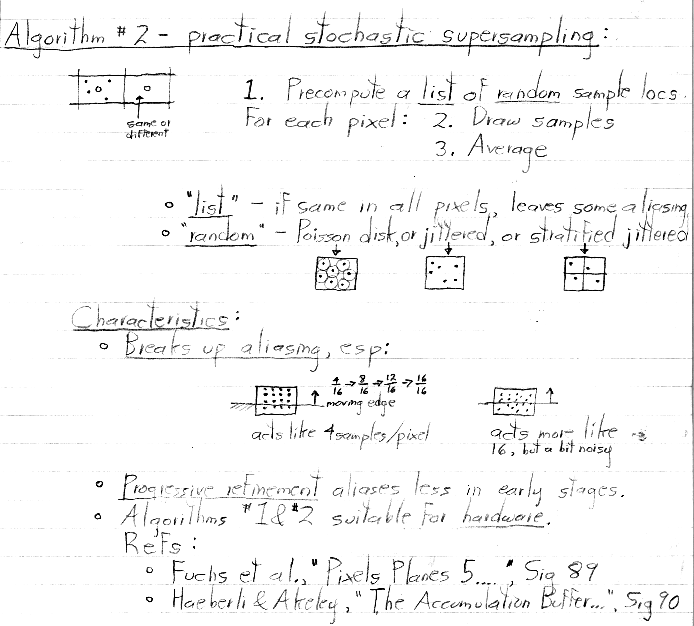 Algorithm #2 - practical stochastic supersampling:
1. Precompute a list of random sample locs.
same or
different
For each pixel: 2. Draw samples
3. Average
"list" - if same in all pixels, leaves some aliasing
"random" - Poisson disk, or jittered, or stratified jittered
Characteristics:
Breaks up aliasing, esp:
4/16 → 8/16 → 12/16 → 16/16
moving edge
acts like 4 samples/pixel
acts more like
16, but a bit noisy
Progressive refinement aliases less in early stages.
Algorithms #1 & #2 suitable for hardware.
Refs:
Fuchs et al., "Pixels Planes 5....", Sig 89
Haeberli & Akeley, "The Accumulation Buffer...", Sig 90